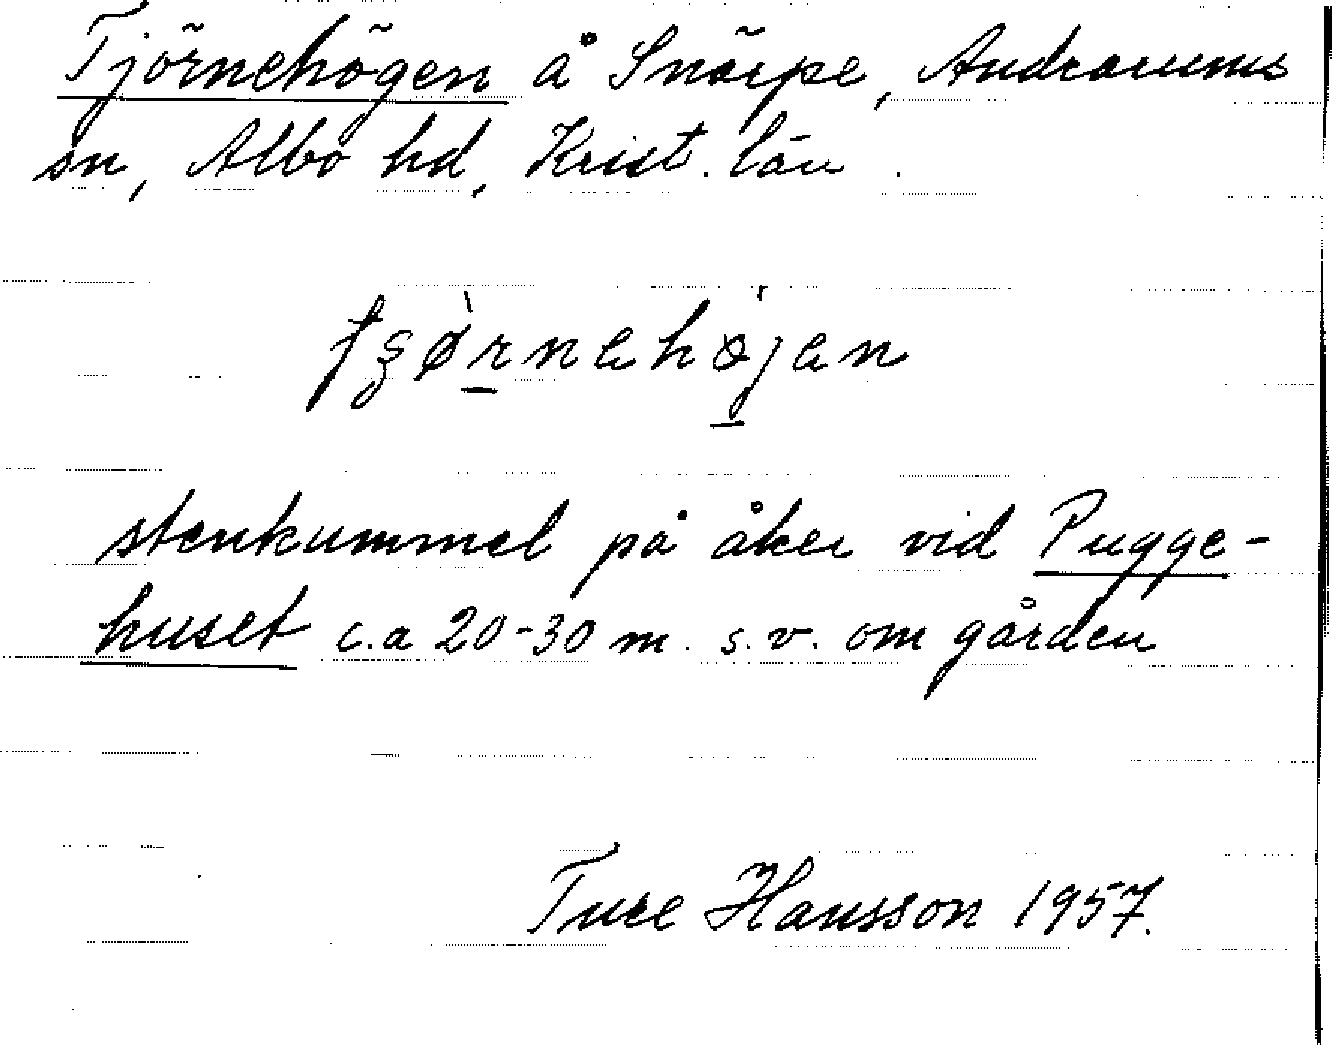 Tjörnehögen å Snärpe, Andrarums
sn, Albo hd, Krist. län.
tʂø̀rnehøjen
stenkummel på åker vid Pugge-
huset c.a 20-30 m. s.v. om gården
Ture Hansson 1957.